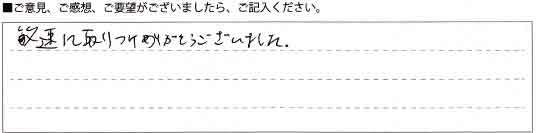 ■ご意見、ご感想、ご要望がございましたら、ご記入ください。
敏速に取りつけありがとうございました.